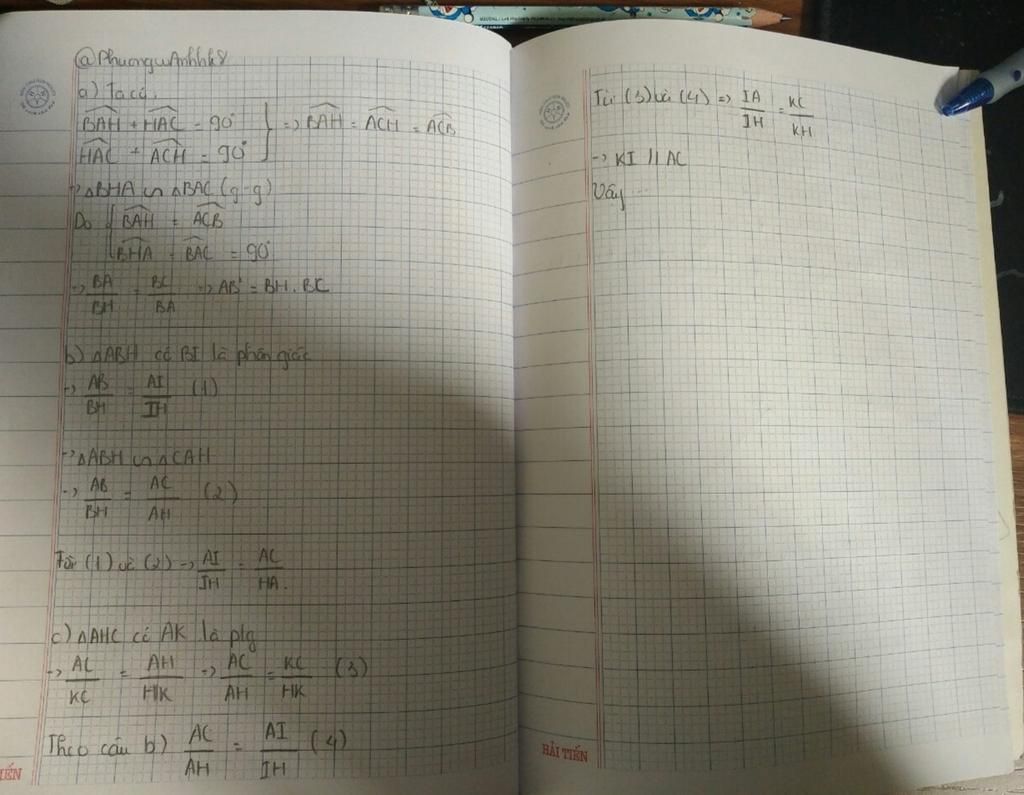 @PhuonguAnhhk8
a) Ta có.
BAH + HAC = 90°
HAC + ACH = 90° } => BAH = ACH = ACB
-> △BHA ∽ △BAC (g-g)
Do { BAH = ACB
BHA = BAC = 90°
-> BA/BH = BC/BA -> AB² = BH. BC
b) △ABH có BI là phân giác
-> AB/BH = AI/IH (1)
-> △ABH ∽ △CAH
-> AB/BH = AC/AH (2)
Từ (1) và (2) -> AI/IH = AC/HA.
c) △AHC có AK là plg
-> AC/KC = AH/HK -> AC/AH = KC/HK (3)
Theo câu b) AC/AH = AI/IH (4)
Từ (3) và (4) => IA/IH = KC/KH
-> KI // AC
Vậy ...
HẢI TIẾN
TIẾN